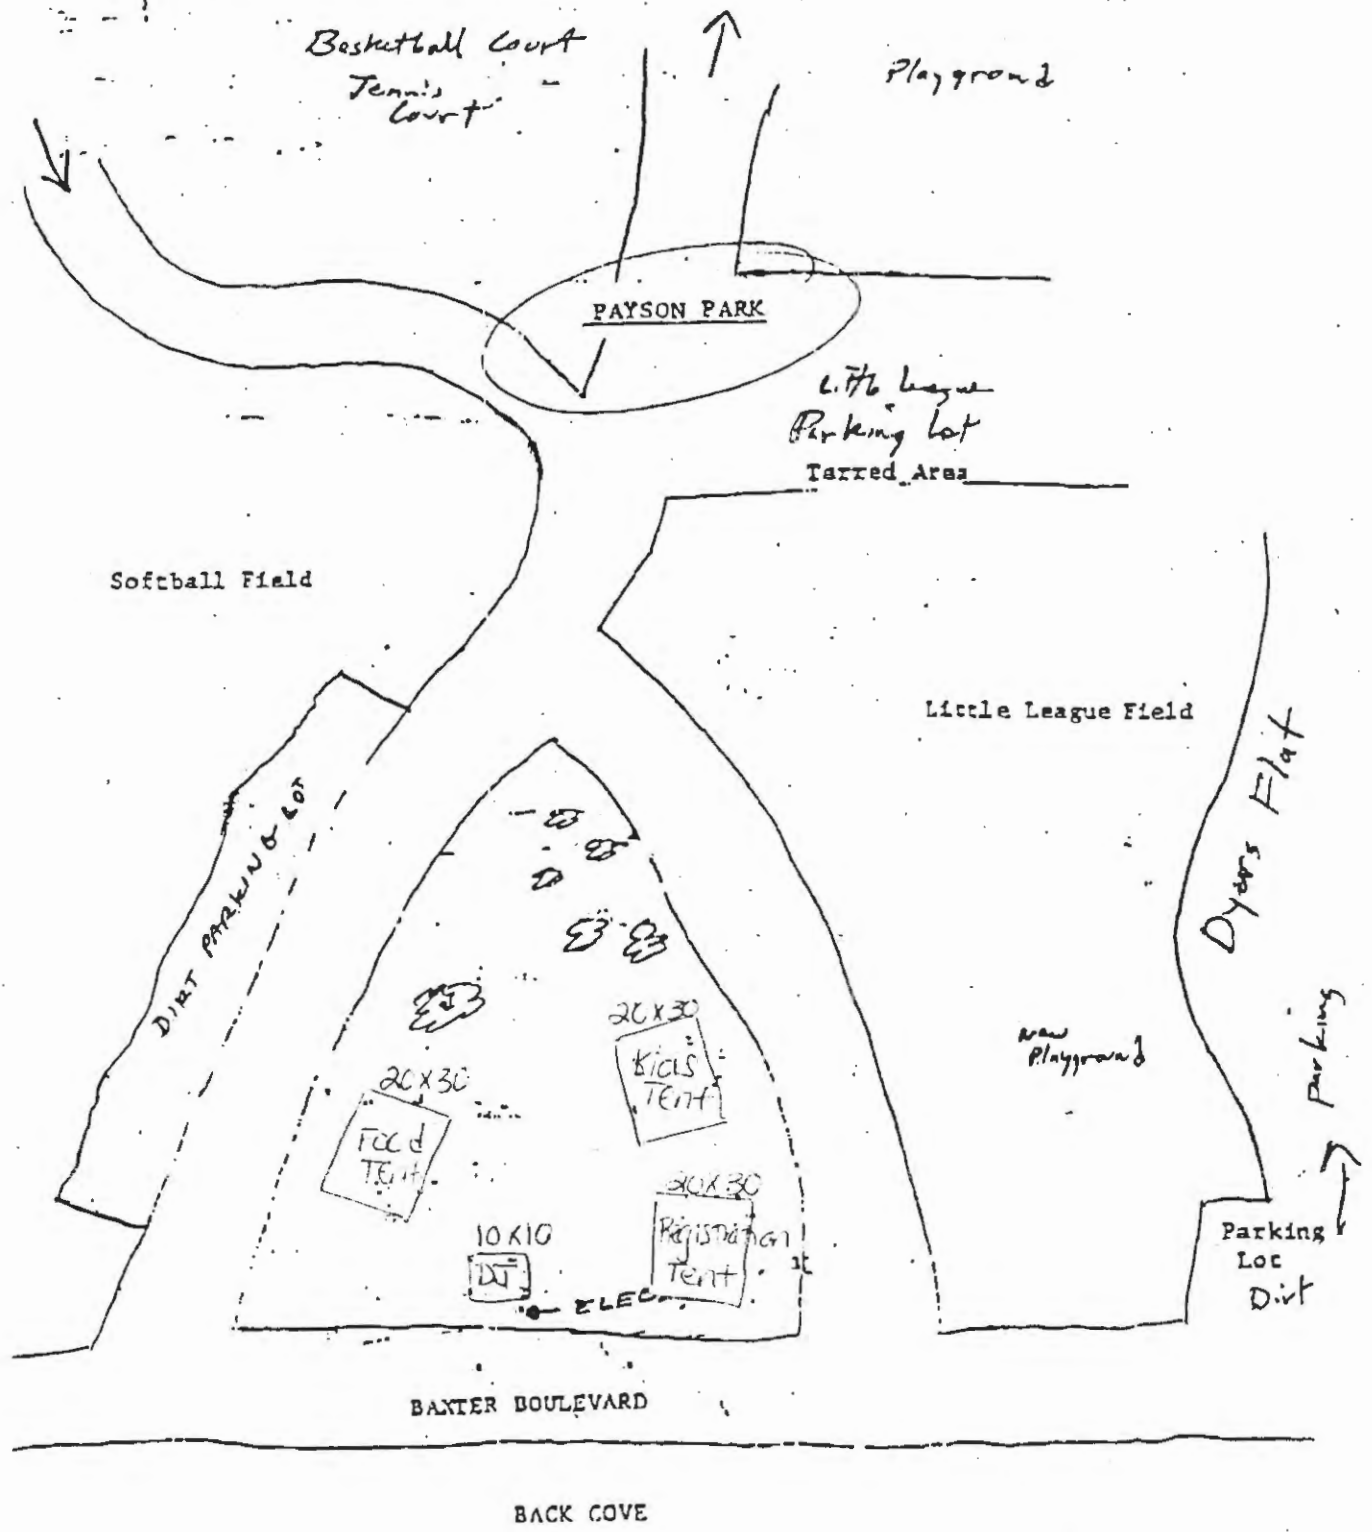 Basketball Court
Tennis
Court
Playground
PAYSON PARK
Little league
Parking Lot
Tarred Area
Softball Field
Little League Field
Dyers Flat
DIRT PARKING LOT
20X30
Kids
Tent
New
Playground
Parking
20X30
Food
Tent
20X30
Registration
Tent
10X10
DJ
ELEC.
Parking
Lot
Dirt
BAXTER BOULEVARD
BACK COVE